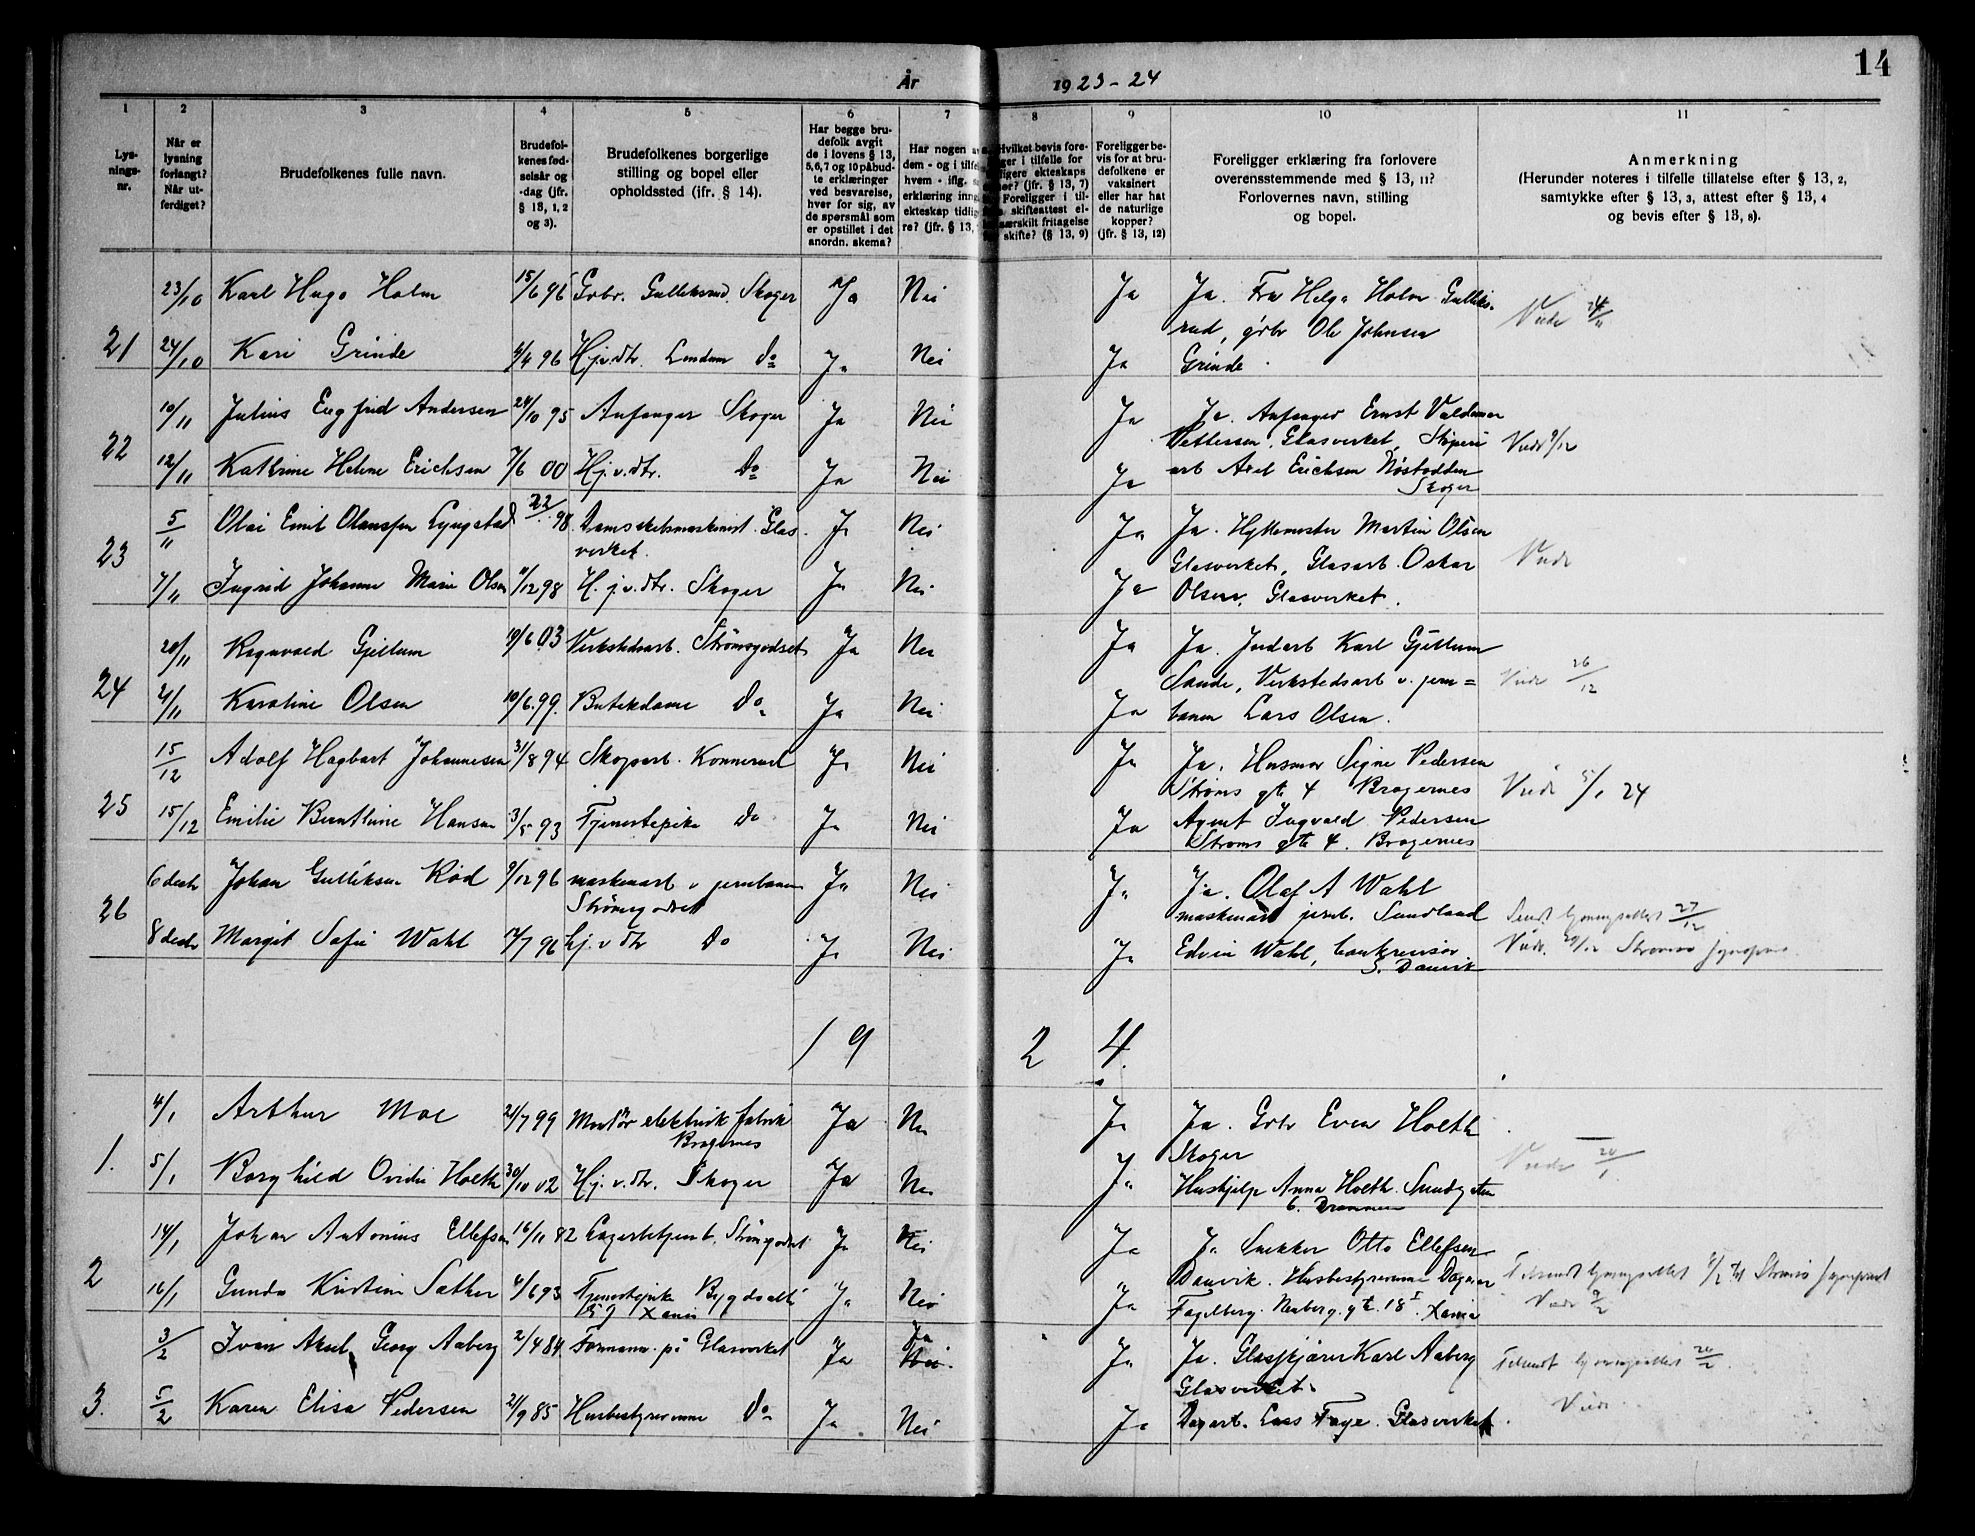 14
År 1923-24
1 2 3 4 5 6 7 8 9 10 11
Lysningsnr.
Når er lysning forlangt? Når utferdiget?
Brudefolkenes fulle navn.
Brudefolkenes fødselsår og -dag (jfr. § 13, 1, 2 og 3).
Brudefolkenes borgerlige stilling og bopel eller opholdssted (ifr. § 14).
Har begge brudefolk avgit de i lovens § 13, 5, 6, 7 og 10 påbudte erklæringer ved besvarelse, hver for sig, av de spørsmål som er opstillet i det anordn. skema?
Har nogen a
dem - og i tilfel
hvem - iflg.
erklæring inng
ekteskap tidlig
re? (jfr. § 13,
Hvilket bevis fore-
ger i tilfelle for
ligere ekteskaps
(jfr. § 13, 7)
Foreligger i til-
skifteattest el-
særskilt fritagelse
skifte? (§ 13, 9)
Foreligger bevis for at brudefolkene er vaksinert eller har hat de naturlige kopper? (jfr. § 13, 12)
Foreligger erklæring fra forlovere
overensstemmende med § 13, 11?
Forlovernes navn, stilling
og bopel.
Anmerkning
(Herunder noteres i tilfelle tillatelse efter § 13, 2,
samtykke efter § 13, 3, attest efter § 13, 4
og bevis efter § 13, 8).
23/10 Karl Hugo Holm 15/6 96 Grbr. Gulliksrud Skoger Ja Nei Ja Ja. Fru Helga Holm Gulliks-
rud, grbr Ole Johnsen
Viede 24/11
21 24/10 Kari Grinde 4/4 96 Hj.v.dtr. Lendum do Ja Nei Ja Grinde.
10/11 Julius Engfred Andersen 24/10 95 Anfanger Skoger Ja Nei Ja Ja. Anfanger Ernst Valdemar
Pettersen. Glasverket, Støperi
Viede 9/12
22 12/11 Kathrine Helene Erichsen 7/6 00 Hj.v.dtr. do Ja Nei Ja arb Axel Erichsen Nøstodden
Skoger
5/11 Olai Emil Olaussen Lyngstad 22/ 98 Damskibsmaskinist. Glas-
verket. Ja Nei Ja Ja. Hyttemester Martin Olsen
Glasverket, Glasarb. Oskar
Viede
23 7/11 Ingrid Johanne Marie Olsen 11/12 98 H.j.v.dtr. Skoger Ja Nei Ja Olsen, Glasverket.
20/11 Ragnvald Gjellum 19/6 03 Verkstedsarb. Strömsgodset Ja Nei Ja Ja. Jordarb Karl Gjellum
Sande, Verkstedsarb v. jern=
Viede 26/12
24 21/11 Karoline Olsen 10/6.99. Butikdame do Ja Nei Ja banen Lars Olsen.
15/12 Adolf Hagbart Johannesen 31/8 94 Skogsarb. Konnerud Ja Nei Ja Ja. Husmor Signe Pedersen
Strøms gte 4 Bragernes
Viede 5/1 24
25 15/12 Emilie Berntline Hansen 3/5 93 Tjenestepike do Ja Nei Ja Agent Ingvald Pedersen
Strøms gte 4. Bragernes
6 desbr Johan Gulliksen Rød 9/12 96 maskinarb v jernbanen
Strømsgodset Ja Nei Ja Ja. Olaf A Wahl
maskinarb jernb. Sundland
Sendt lysningsattest 27/12
26 8 desbr Margit Sofie Wahl 7/96 hj. v dtr do Ja Nei Ja Edvin Wahl, bankrevisor
S. Danvik
Viede. 29/12 Strømsø
19 2 4.
4/1 Arthur Moe 21/7 99 Montør elektrisk fabrik
Bragernes Ja Nei Ja Ja. Grbr Even Holth
Skoger
Viede 20/1
1. 5/1 Borghild Ovidie Holth 30/10 02 Hj.v.dtr. Skoger Ja Nei Ja Hushjelp Anna Holth. Sundgaten
6. Drammen
14/1 Johan Antonius Ellefsen 16/11 82 Lagerbetjent. Strömsgodset Ja Nei Ja Ja Snekker Otto Ellefsen
Danvik. Husbestyrerinne Dagmar
Tilsendt lysningsattest /2 til Strømsø
2 16/1 Gunda Kristine Sæther 4/6 93 Tjenestepike Bygdøalle
Kania Ja Nei Ja Fagelberg. Neuberg. gt. 18 I. Kania
Viede 9/2
3/2 Ivan Axel Georg Aaberg 2/4 84 Formann på Glasverket Ja Ja Nei. Ja Ja. Glasskjærer Karl Aaberg
Glasverket.
Tilsendt lysningsattest 20/2.
3. 5/2 Karen Elisa Pedersen 21/9 85 Husbestyrerinne do Ja Nei Ja Dagarb. Lars Faye. Glasverket.
Viede.